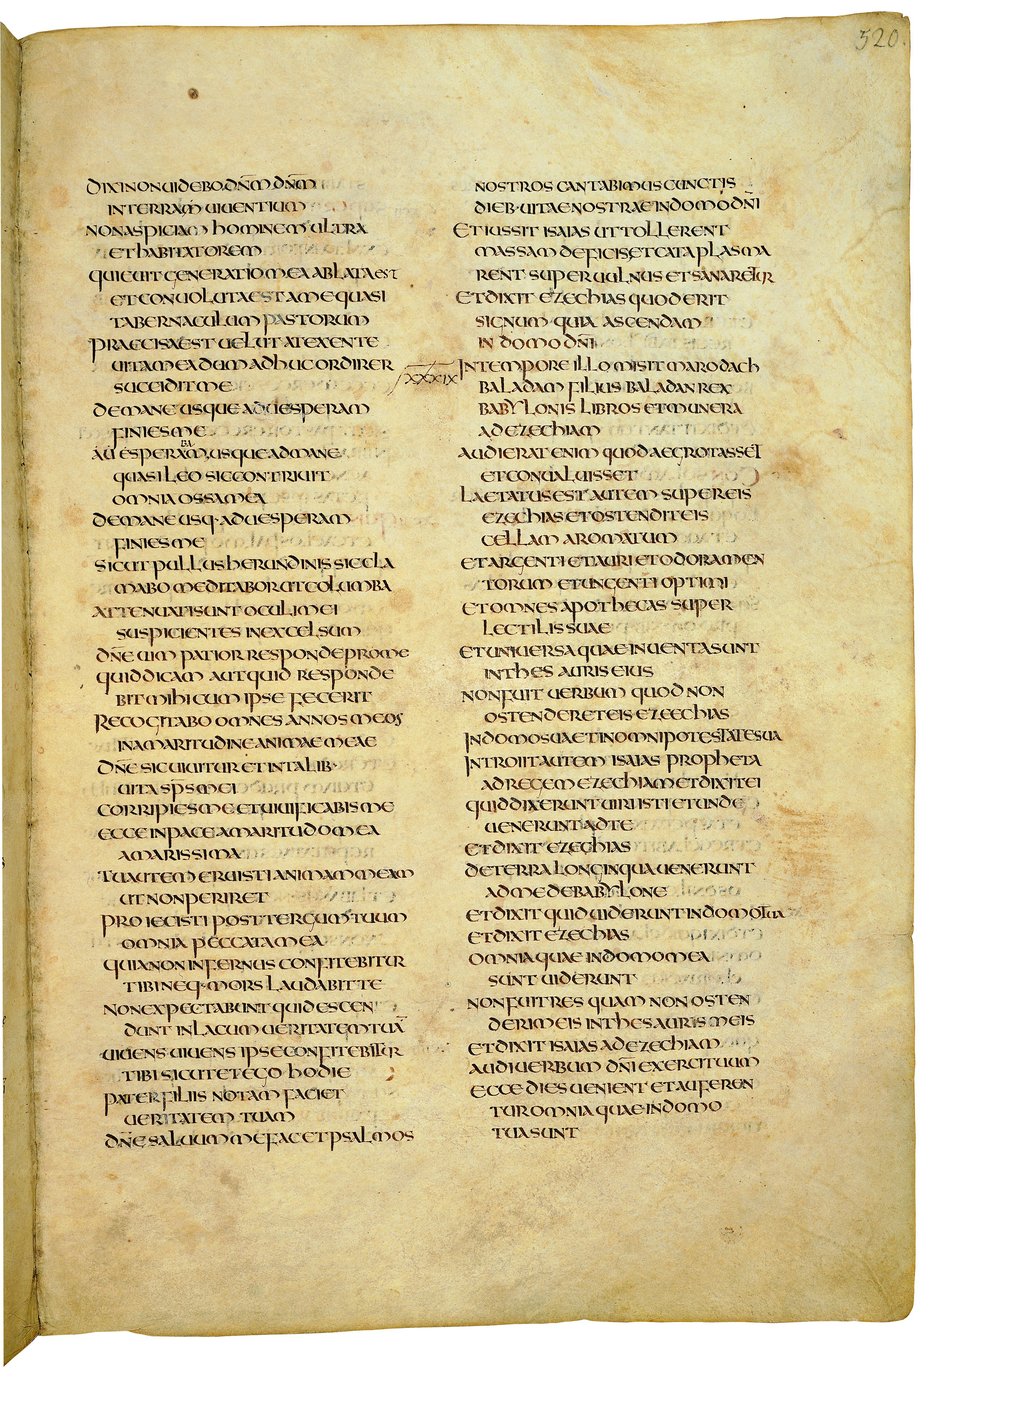 520.
DIXI NON UIDEBO DN̅M DN̅M
IN TERRAM UIUENTIUM
NON ASPICIAM HOMINEM ULTRA
ET HABITATOREM
QUIEUIT GENERATIO MEA ABLATA EST
ET CONUOLUTA EST A ME QUASI
TABERNACULUM PASTORUM
PRAECISA EST UELUT A TEXENTE
UITA MEA DUM ADHUC ORDIRER
SUCCIDIT ME
DE MANE USQUE AD UESPERAM
FINIES ME
USQUE AD MANE
QUASI LEO SIC CONTRIUIT
OMNIA OSSA MEA
DE MANE USQ· AD UESPERAM
FINIES ME
SICUT PULLUS HIRUNDINIS SIC CLA
MABO MEDITABOR UT COLUMBA
ATTENUATI SUNT OCULI MEI
SUSPICIENTES IN EXCELSUM
DN̅E UIM PATIOR RESPONDE PRO ME
QUID DICAM AUT QUID RESPONDE
BIT MIHI CUM IPSE FECERIT
RECOGITABO OMNES ANNOS MEOS
IN AMARITUDINE ANIMAE MEAE
DN̅E SI SIC UIUITUR ET IN TALIB·
UITA SP̅S MEI
CORRIPIES ME ET UIUIFICABIS ME
ECCE IN PACE AMARITUDO MEA
AMARISSIMA
TU AUTEM ERUISTI ANIMAM MEAM
UT NON PERIRET
PROIECISTI POST TERGUM TUUM
OMNIA PECCATA MEA
QUIA NON INFERNUS CONFITEBITUR
TIBI NEQ· MORS LAUDABIT TE
NON EXPECTABUNT QUI DESCEN
DUNT IN LACUM UERITATEM TUA̅
UIUENS UIUENS IPSE CONFITEBITUR
TIBI SICUT ET EGO HODIE
PATER FILIIS NOTAM FACIET
UERITATEM TUAM
DN̅E SALUUM ME FAC ET PSALMOS
NOSTROS CANTABIMUS CUNCTIS
DIEB· UITAE NOSTRAE IN DOMO DN̅I
ET IUSSIT ISAIAS UT TOLLERENT
MASSAM DE FICIS ET CATAPLASMA
RENT SUPER UULNUS ET SANARETUR
ET DIXIT EZECHIAS QUOD ERIT
SIGNUM QUIA ASCENDAM
IN DOMO DN̅I
XXXIX
IN TEMPORE ILLO MISIT MARODACH
BALADAM FILIUS BALADAN REX
BABYLONIS LIBROS ET MUNERA
AD EZECHIAM
AUDIERAT ENIM QUOD AEGROTASSET
ET CONUALUISSET
LAETATUS EST AUTEM SUPER EIS
EZECHIAS ET OSTENDIT EIS
CELLAM AROMATUM
ET ARGENTI ET AURI ET ODORAMEN
TORUM ET UNGENTI OPTIMI
ET OMNES APOTHECAS SUPER
LECTILIS SUAE
ET UNIUERSA QUAE INUENTA SUNT
IN THESAURIS EIUS
NON FUIT UERBUM QUOD NON
OSTENDERET EIS EZECHIAS
IN DOMO SUA ET IN OMNI POTESTATE SUA
INTROIIT AUTEM ISAIAS PROPHETA
AD REGEM EZECHIAM ET DIXIT EI
QUID DIXERUNT UIRI ISTI ET UNDE
UENERUNT AD TE
ET DIXIT EZECHIAS
DE TERRA LONGINQUA UENERUNT
AD ME DE BABYLONE
ET DIXIT QUID UIDERUNT IN DOMO TUA
ET DIXIT EZECHIAS
OMNIA QUAE IN DOMO MEA
SUNT UIDERUNT
NON FUIT RES QUAM NON OSTEN
DERIM EIS IN THESAURIS MEIS
ET DIXIT ISAIAS AD EZECHIAM
AUDI UERBUM DN̅I EXERCITUUM
ECCE DIES UENIENT ET AUFEREN
TUR OMNIA QUAE IN DOMO
TUA SUNT